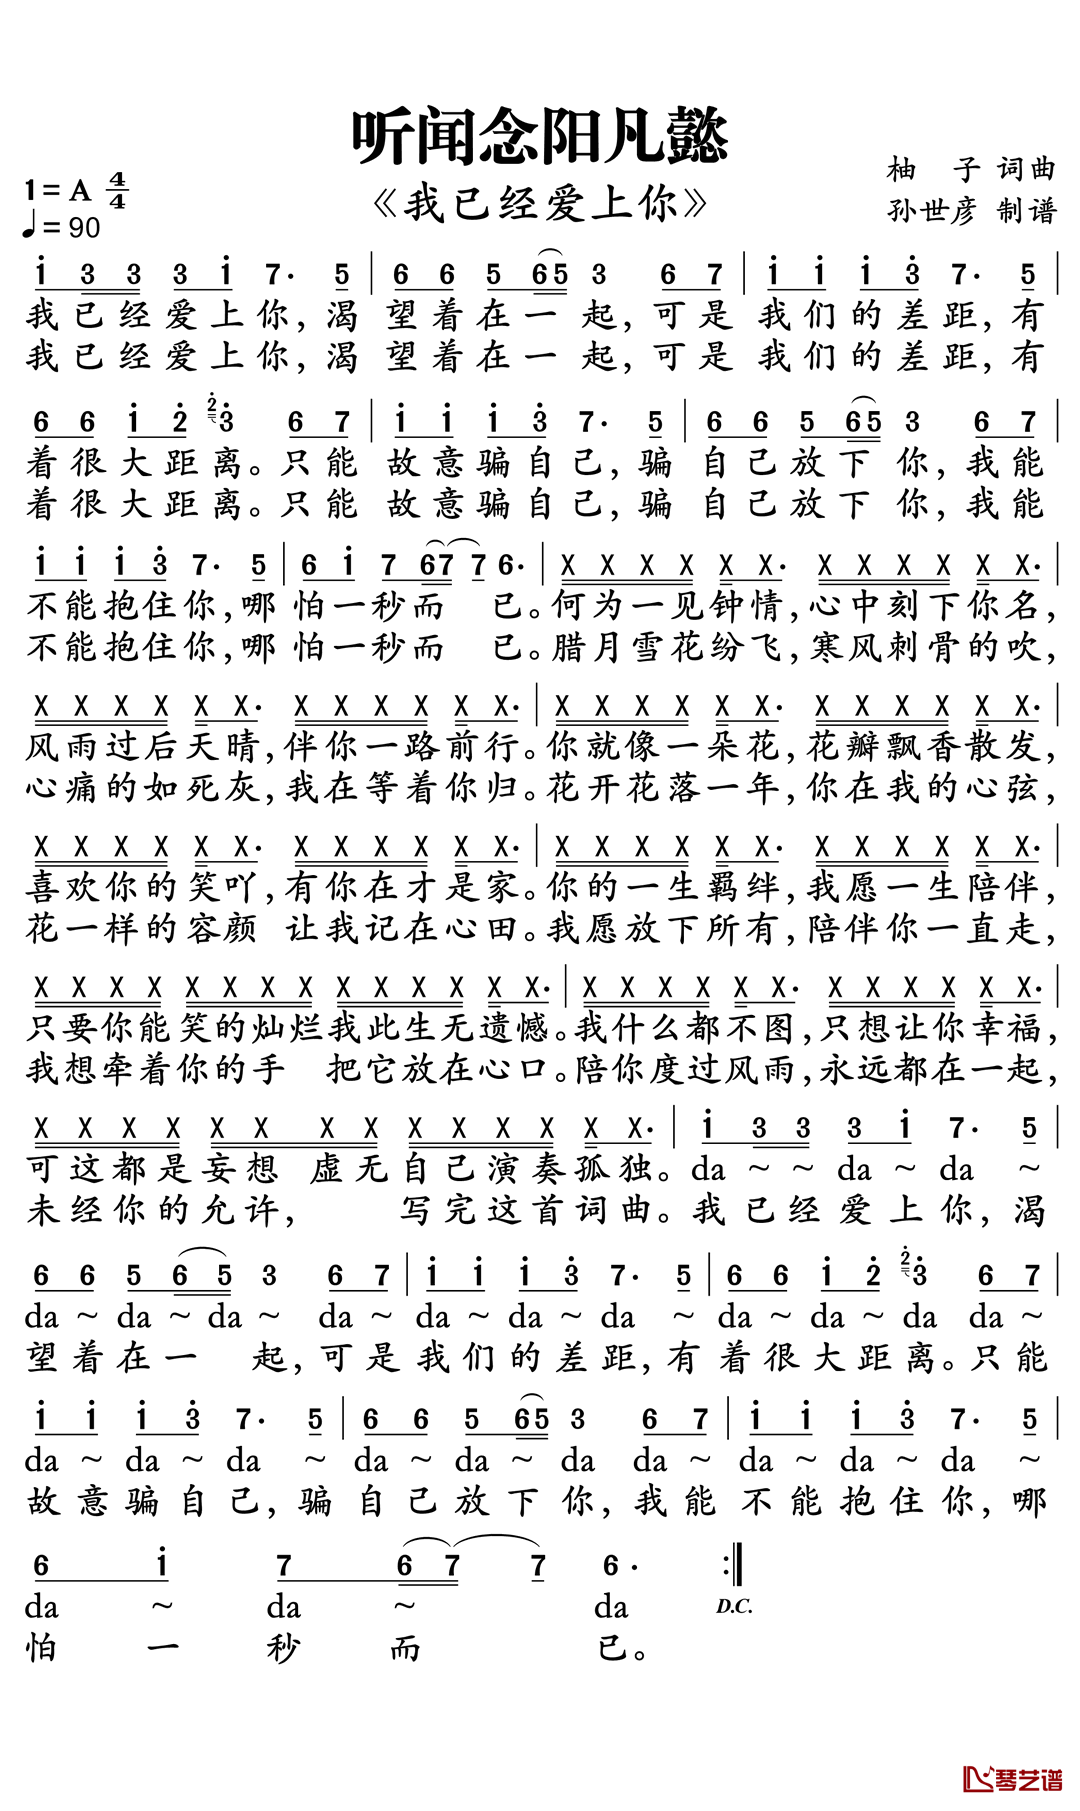 听闻念阳凡懿
《我已经爱上你》
1=A 4/4
♩=90
柚 子 词曲
孙世彦 制谱
i 3 3 3 i 7· 5 | 6 6 5 6 5 3 6 7 | i i i 3̇ 7· 5 |
我已经爱上你,渴 望着在一 起,可是 我们的差距,有
我已经爱上你,渴 望着在一 起,可是 我们的差距,有
6 6 i 2̇ 2̇ 3̇ 6 7 | i i i 3̇ 7· 5 | 6 6 5 6 5 3 6 7 |
着很大距离。只能 故意骗自己,骗 自己放下 你,我能
着很大距离。只能 故意骗自己,骗 自己放下 你,我能
i i i 3̇ 7· 5 | 6 i 7 6 7 7 6· | X X X X X X· X X X X X X· |
不能抱住你,哪 怕一秒而 已。何为一见钟情,心中刻下你名,
不能抱住你,哪 怕一秒而 已。腊月雪花纷飞,寒风刺骨的吹,
X X X X X X· X X X X X X· | X X X X X X· X X X X X X· |
风雨过后天晴,伴你一路前行。你就像一朵花,花瓣飘香散发,
心痛的如死灰,我在等着你归。花开花落一年,你在我的心弦,
X X X X X X· X X X X X X· | X X X X X X· X X X X X X· |
喜欢你的笑吖,有你在才是家。你的一生羁绊,我愿一生陪伴,
花一样的容颜 让我记在心田。我愿放下所有,陪伴你一直走,
X X X X X X X X X X X X X X· | X X X X X X· X X X X X X· |
只要你能笑的灿烂我此生无遗憾。我什么都不图,只想让你幸福,
我想牵着你的手 把它放在心口。陪你度过风雨,永远都在一起,
X X X X X X X X X X X X X X· | i 3 3 3 i 7· 5 |
可这都是妄想 虚无自己演奏孤独。da ~ ~ da ~ da ~
未经你的允许, 写完这首词曲。我已经爱上你,渴
6 6 5 6 5 3 6 7 | i i i 3̇ 7· 5 | 6 6 i 2̇ 2̇ 3̇ 6 7 |
da ~ da ~ da ~ da ~ da ~ da ~ da ~ da ~ da ~ da da ~
望着在一 起,可是我们的差距,有着很大距离。只能
i i i 3̇ 7· 5 | 6 6 5 6 5 3 6 7 | i i i 3̇ 7· 5 |
da ~ da ~ da ~ da ~ da ~ da da ~ da ~ da ~ da ~
故意骗自己,骗自己放下你,我能不能抱住你,哪
6 i 7 6 7 7 6· :‖
da ~ da ~ da D.C.
怕一秒而 已。
琴艺谱